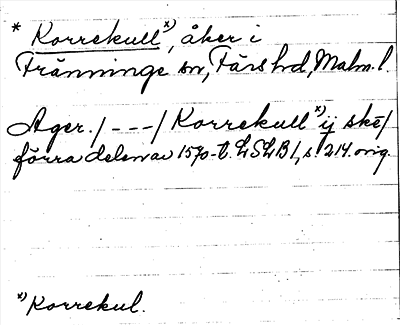 * Korrekull x), åker i
Tränninge sn, Färs hd, Malm. l.
Ager. / - - - / Korrekull x) ij skē /
förra delen av 1570-t. LSLB 1, s. 214. orig.
x) Korrekul.